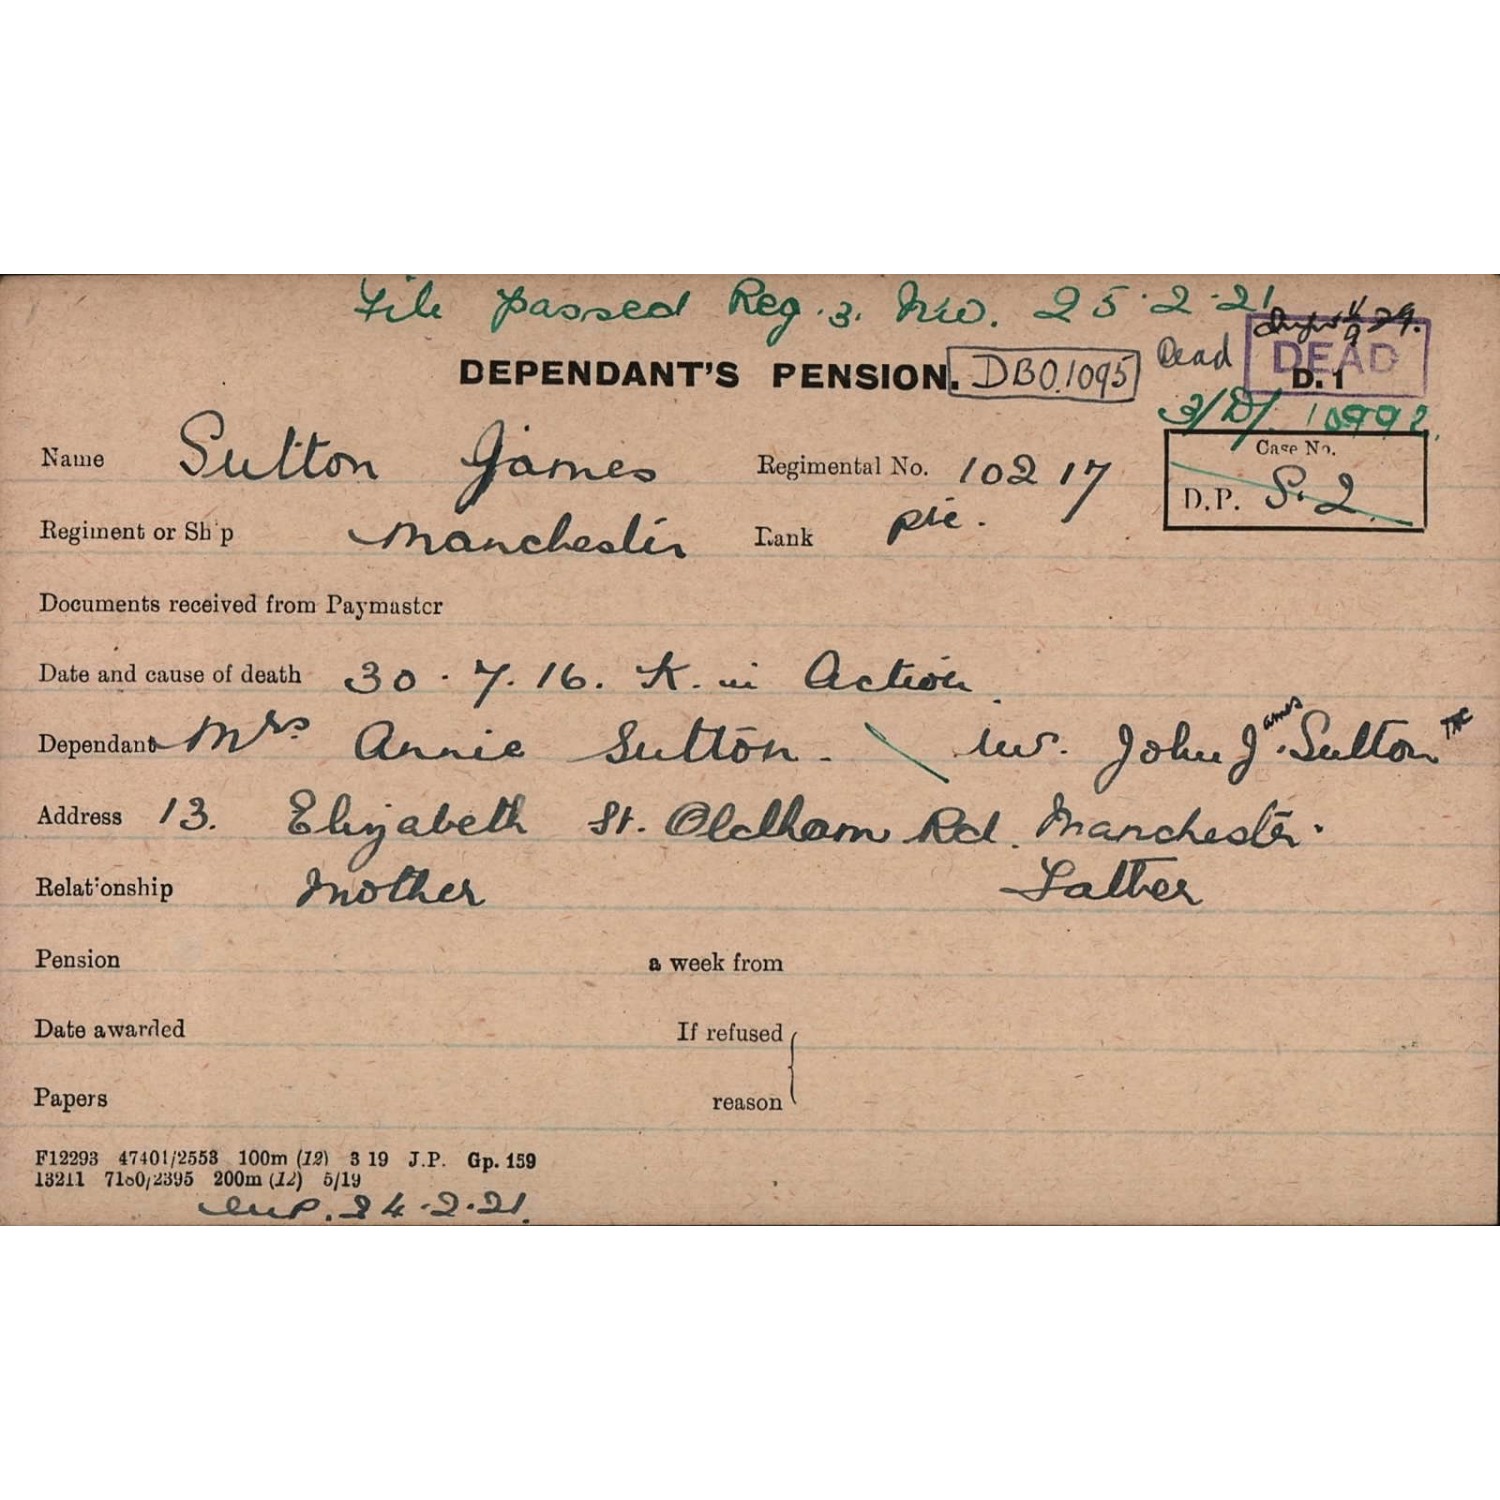 File passed Reg. 3. NW. 25.2.21
DEPENDANT'S PENSION. DBO.1095 Dead DEAD
D. 1
3/D/ 10992.
Name Sutton James Regimental No. 10217
Case No.
D.P. S.2.
Regiment or Ship Manchester Rank pte.
Documents received from Paymaster
Date and cause of death 30.7.16. K. in Action
Dependant Mrs Annie Sutton. John James Sutton
Address 13. Elizabeth St. Oldham Rd. Manchester.
Relationship Mother Father
Pension a week from
Date awarded If refused
Papers reason
F12293 47401/2553 100m (12) 3 19 J.P. Gp. 159
13211 7180/2395 200m (12) 5/19
24.2.21.